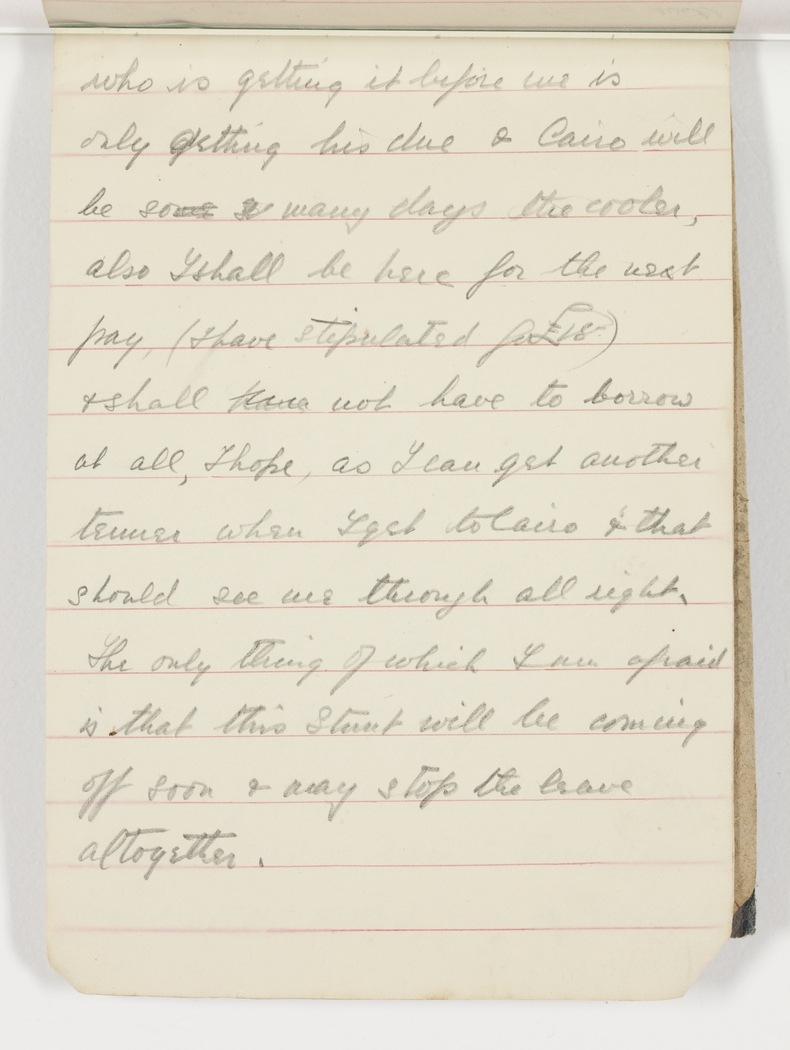 who is getting it before me is
only getting his due & Cairo will
be so many days the cooler,
also I shall be here for the next
pay, (I have stipulated for £18)
& shall not have to borrow
at all, I hope, as I can get another
tenner when I get to Cairo & that
should see me through all right.
The only thing of which I am afraid
is that this stunt will be coming
off soon & may stop the leave
altogether.